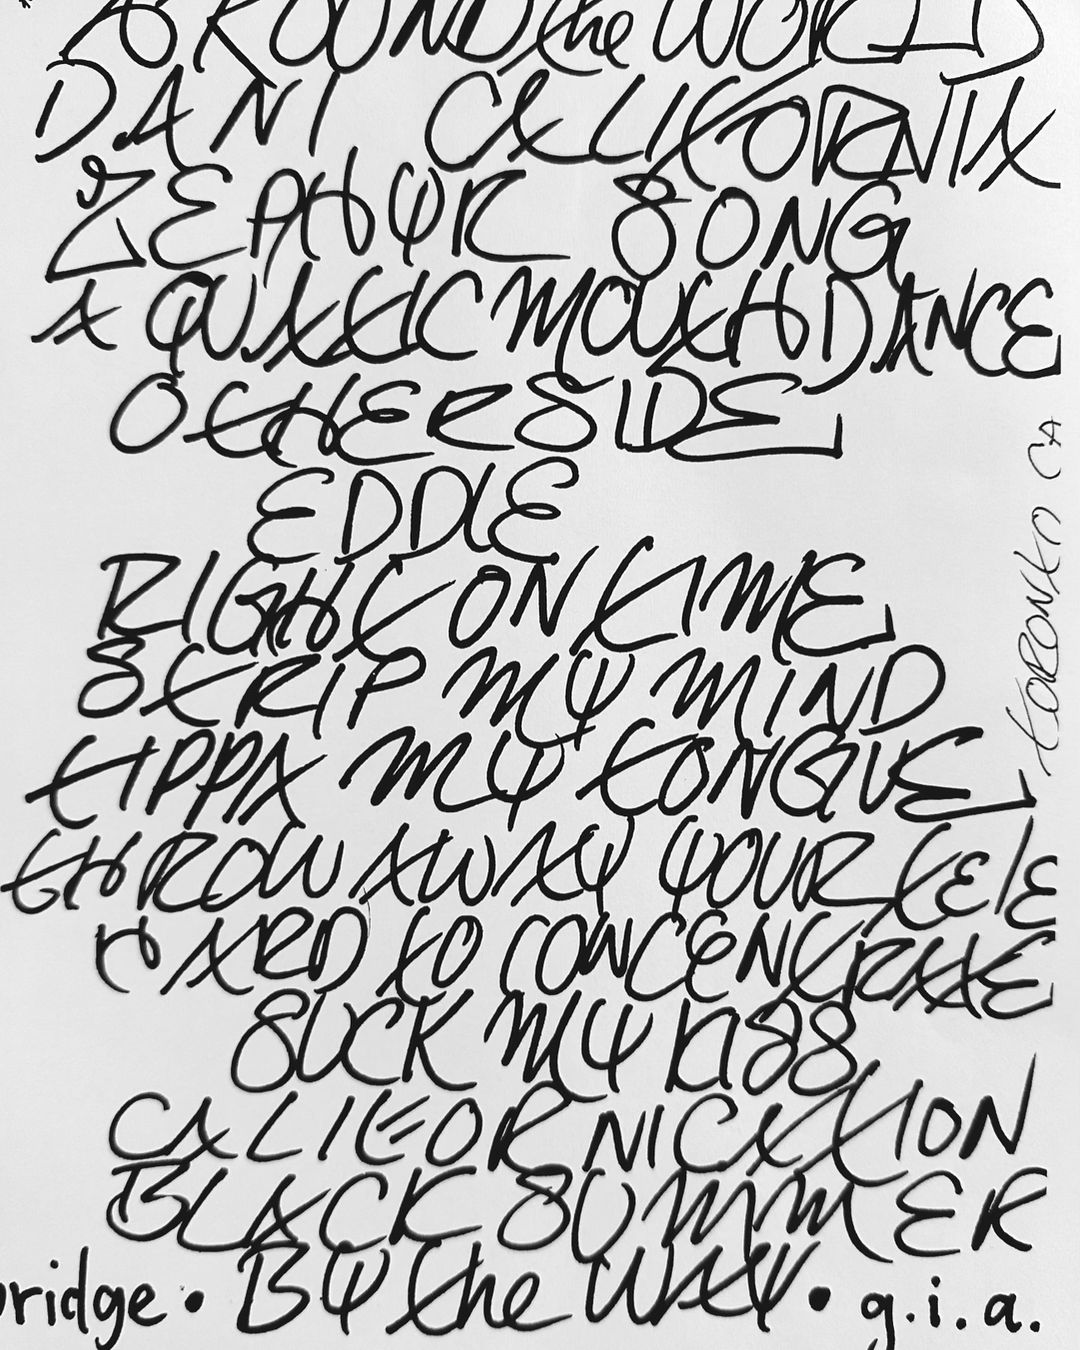 AROUND the WORLD
DANI CALIFORNIA
ZEPHYR SONG
AQUATIC MOUTH DANCE
OTHERSIDE
EDDIE
RIGHT ON TIME
STRIP MY MIND
TIPPA MY TONGUE
THROW AWAY YOUR TELE
HARD TO CONCENTRATE
SUCK MY KISS
CALIFORNICATION
BLACK SUMMER
bridge • BY the WAY • g.i.a.
TORONTO CA